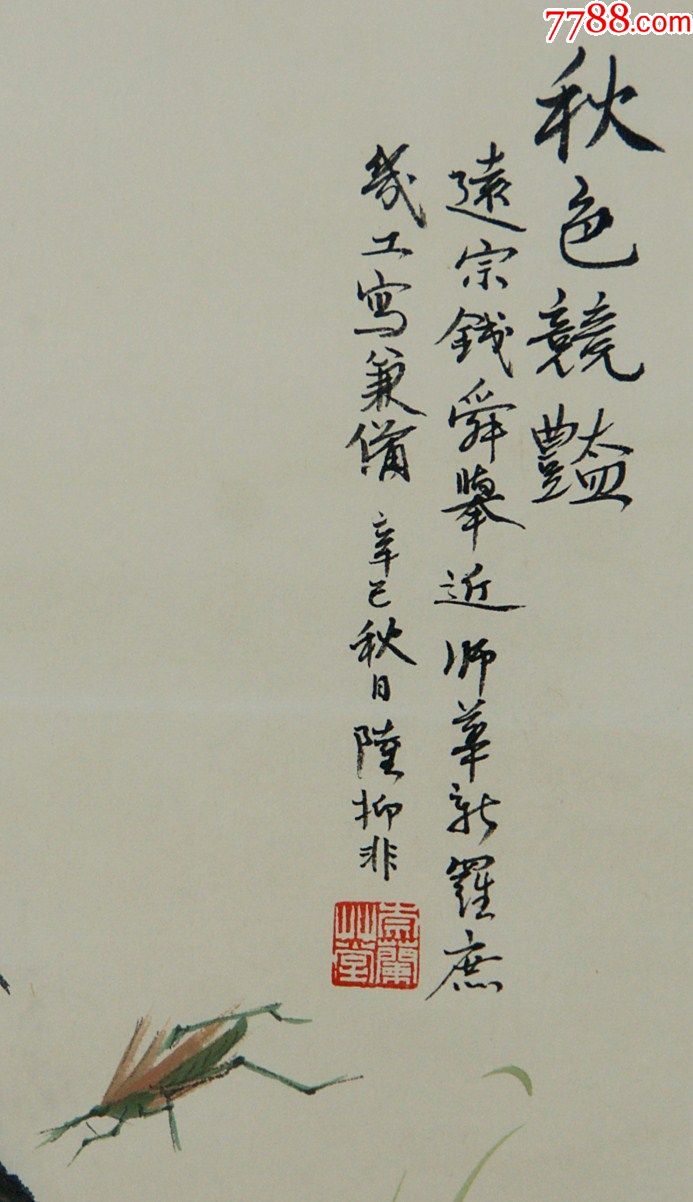 7788.com
秋色競豔
遠宗錢舜舉近師華新羅庶
幾工寫兼備 辛巳秋日 陸抑非
蘭
草堂